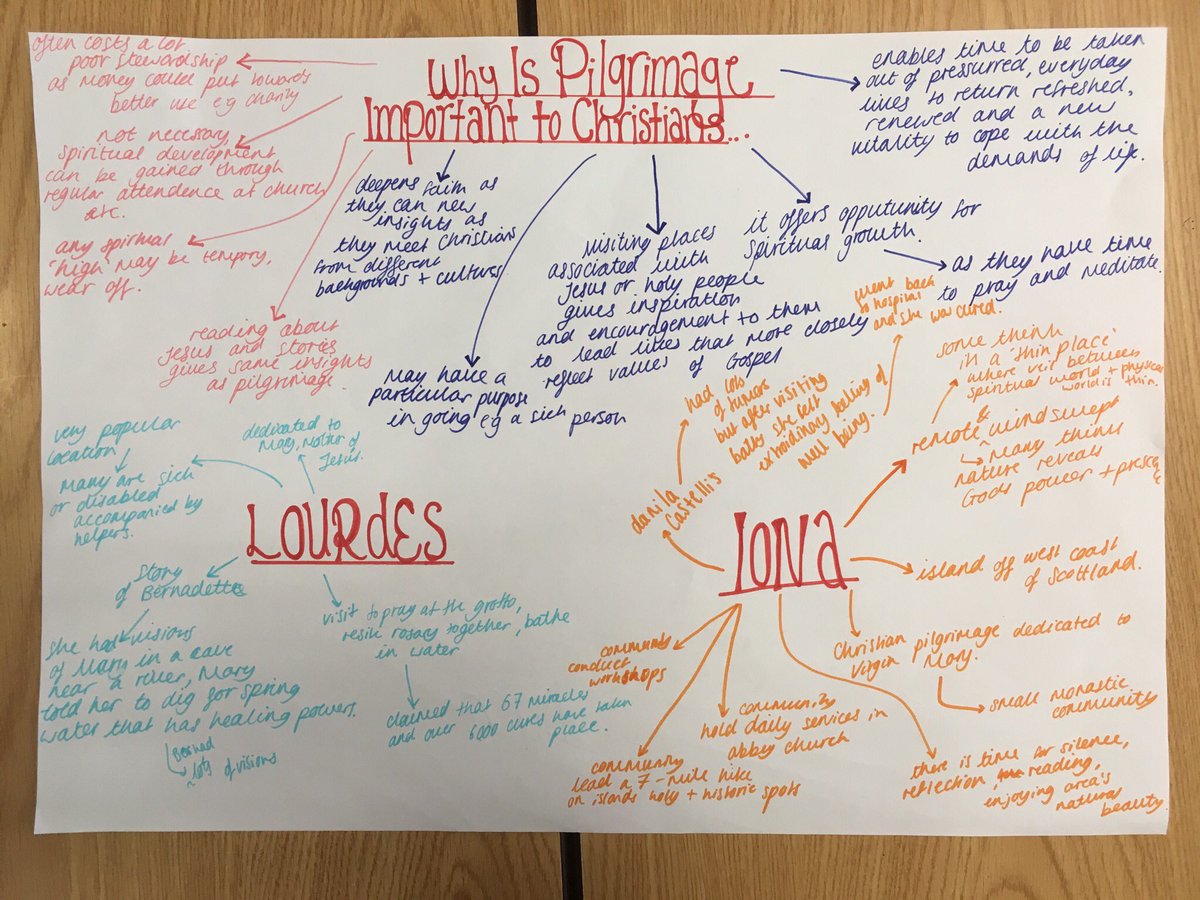 Why Is Pilgrimage
Important to Christians...
often costs a lot.
poor stewardship
as money could put towards
better use eg charity
not necessary,
spiritual development
can be gained through
regular attendence at church
etc.
any spirtual
'high' may be tempory,
wear off.
reading about
Jesus and stories
gives same insights
as pilgrimage.
deepens faith as
they can new
insights as
they meet Christians
from different
backgrounds + cultures
may have a
particular purpose
in going eg a sick person
Visiting places
associated with
Jesus or holy people
gives inspiration
and encouragement to them
to lead lives that more closely
reflect values of Gospel
it offers opputunity for
spiritual growth.
as they have time
to pray and meditate.
enables time to be taken
out of pressurred, everyday
lives to return refreshed,
renewed and a new
vitality to cope with the
demands of life.
LOURdES
very popular
location
many are sick
or disabled
accompanied by
helpers.
dedicated to
Mary, Mother of
Jesus.
Story
of Bernadette
she had visions
of Mary in a cave
near a river, Mary
told her to dig for spring
water that has healing powers.
lots of visions
visit to pray at the grotto,
rosary together, bathe
in water
claimed that 67 miracles
and over 6000 cures have taken
place.
IONa
danila
Castelli's
had lots
of tumors
but after visiting
baths she felt
extraordinary feeling of
well being.
went back
to hospital
and she was cured.
some think
it a 'thin place'
where veil between
spiritual world + physical
world is thin.
remote & windswept
many think
nature reveals
Gods power + presence
island off west coast
of Scotland.
Christian pilgrimage dedicated to
Virgin Mary.
small monastic
community
there is time for silence,
reflection, reading,
enjoying area's
natural
beauty.
community
conduct
workshops
community
hold daily services in
abbey church
community
lead a 7-mile hike
on islands holy + historic spots